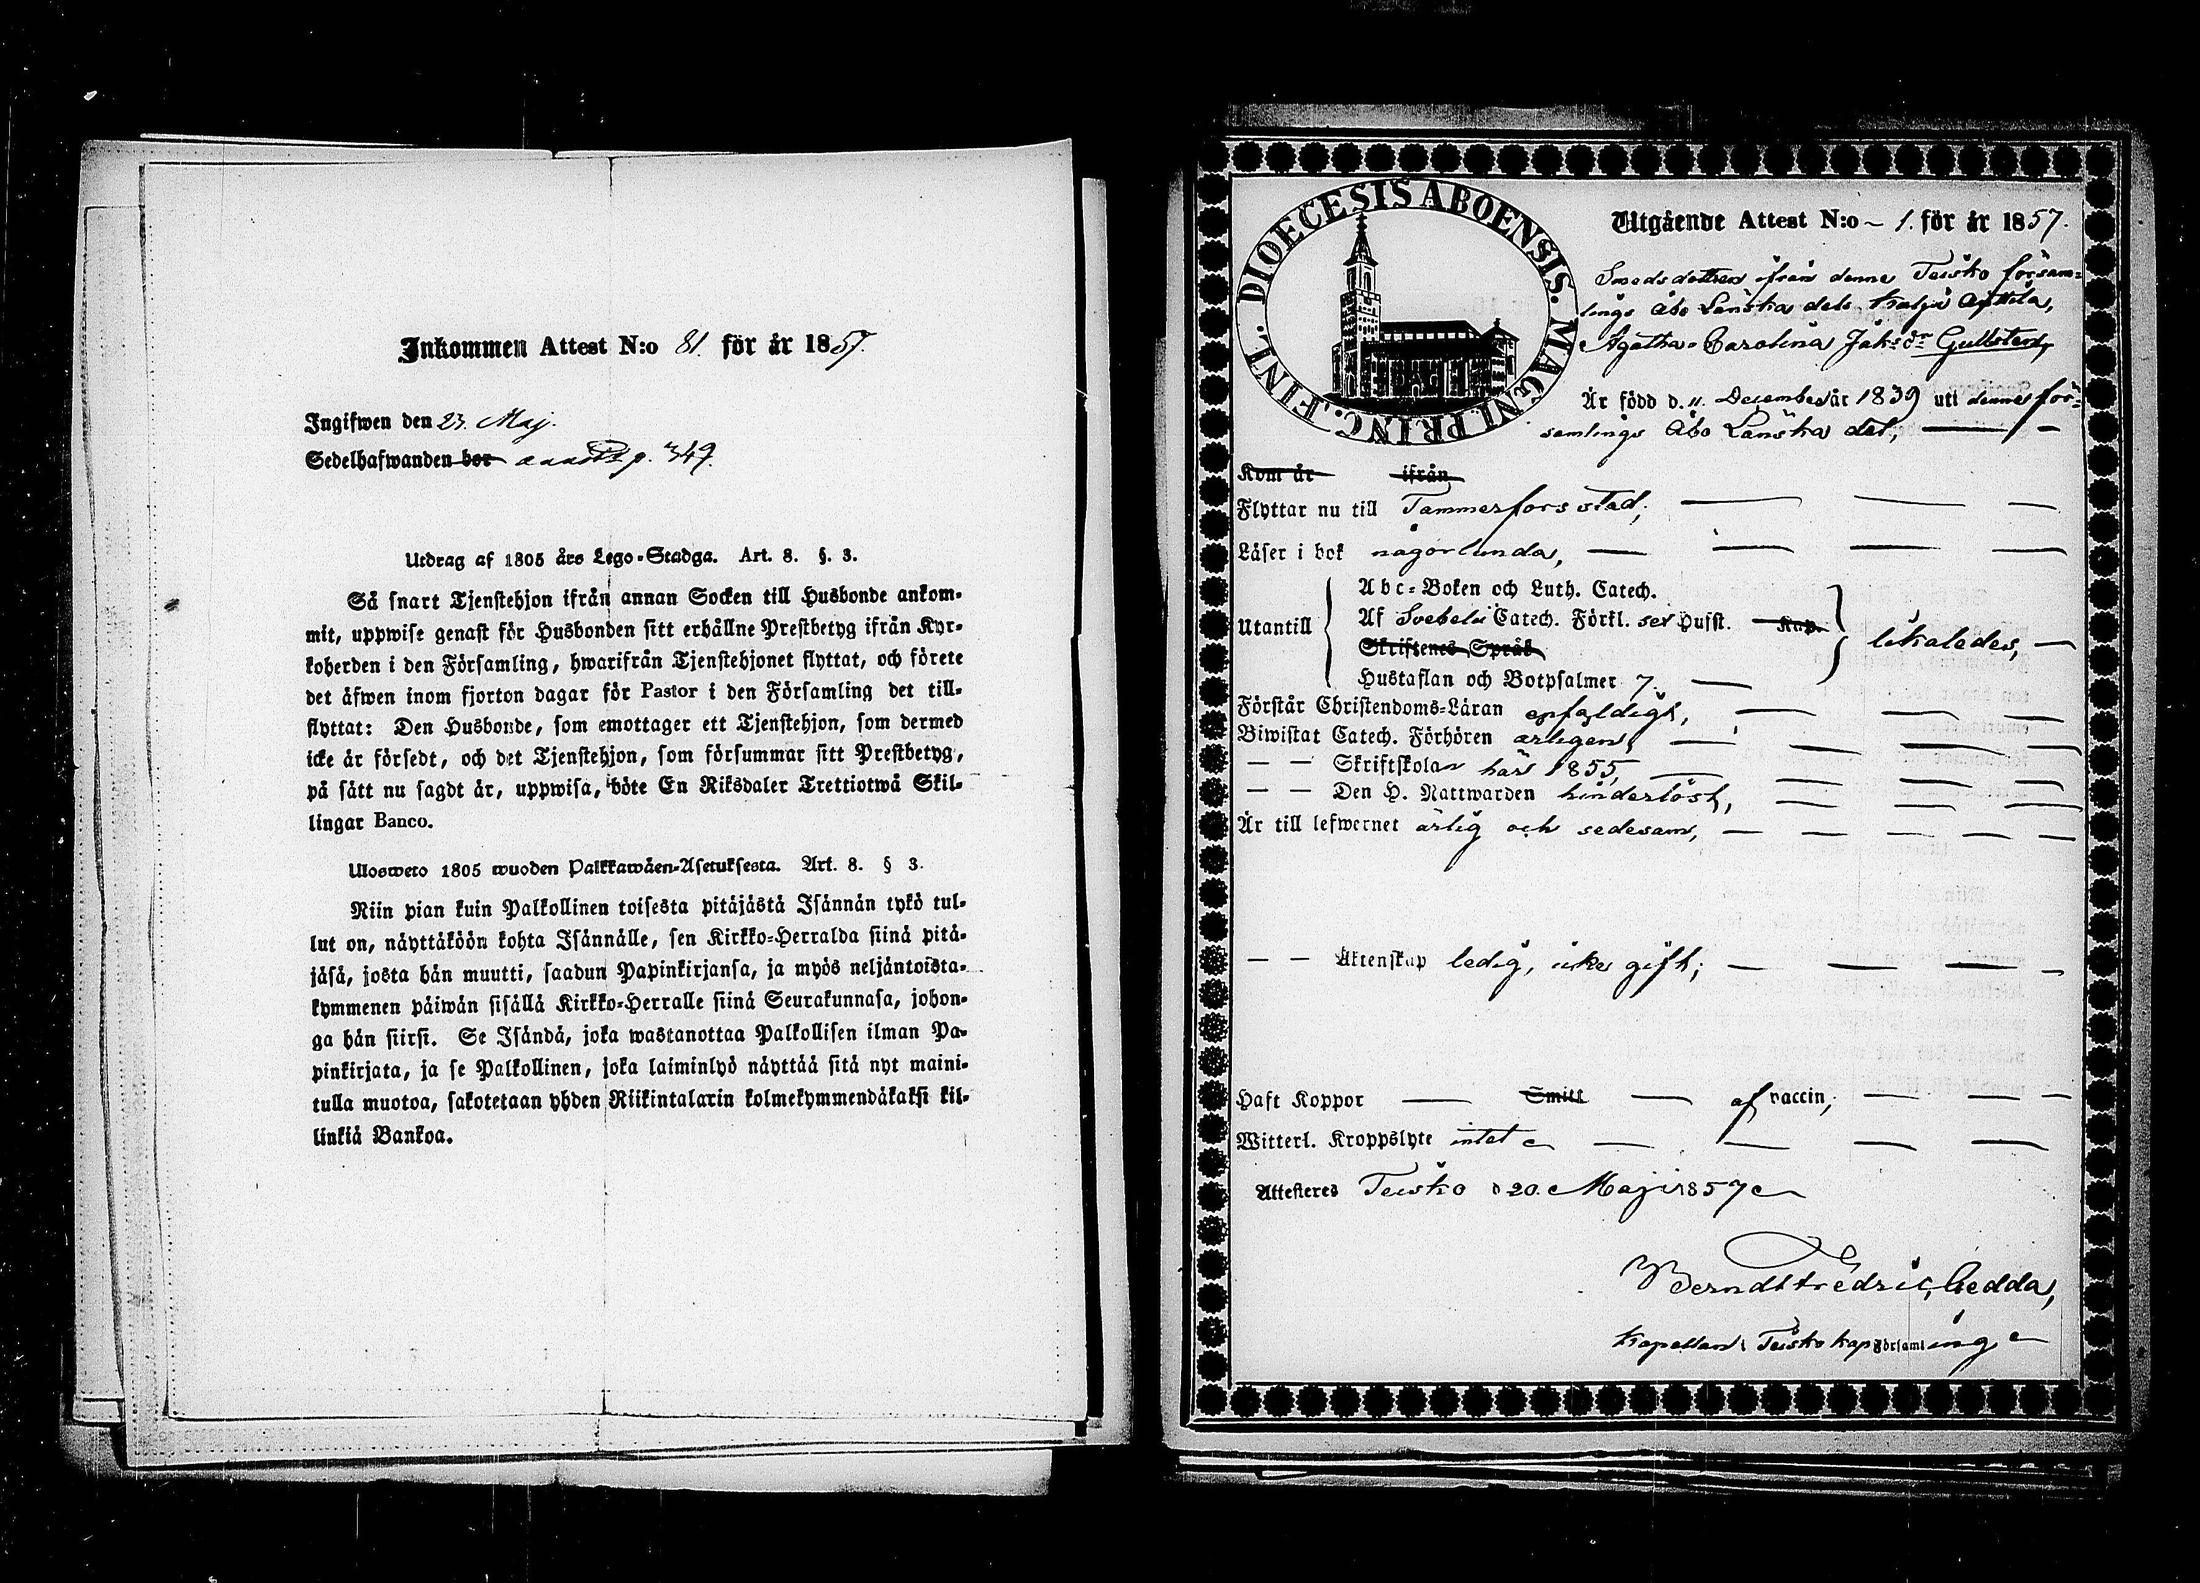 Inkommen Attest N:o 81. för år 1857.
Ingifwen den 23. Maj.
Sedelhafwanden bor p. 349.
Utdrag af 1805 års Lego-Stadga. Art. 8. §. 3.
Så snart Tjenstehjon ifrån annan Socken till Husbonde ankom-
mit, uppwise genast för Husbonden sitt erhållne Prestbetyg ifrån Kyr-
koherden i den Församling, hwarifrån Tjenstehjonet flyttat, och förete
det äfwen inom fjorton dagar för Pastor i den Församling det till-
flyttat: Den Husbonde, som emottager ett Tjenstehjon, som dermed
icke är försedt, och det Tjenstehjon, som försummar sitt Prestbetyg,
på sätt nu sagdt är, uppwisa, böte En Riksdaler Trettiotwå Skil-
lingar Banco.
Ulosweto 1805 wuoden Palkkawäen-Asetuksesta. Art. 8. § 3.
Niin pian kuin Palkollinen toisesta pitäjästä Isännän tykö tul-
lut on, näyttäköön kohta Isännälle, sen Kirkko-Herralda siinä pitä-
jäsä, josta hän muutti, saadun Papinkirjansa, ja myös neljäntoista-
kymmenen päiwän sisällä Kirkko-Herralle siinä Seurakunnasa, johon-
ga hän siirsi. Se Isändä, joka wastanottaa Palkollisen ilman Pa-
pinkirjata, ja se Palkollinen, joka laiminlyö näyttää sitä nyt maini-
tulla muotoa, sakotetaan yhden Riikintalarin kolmekymmendäkaksi kil-
linkiä Bankoa.
DIOECESIS ABOENSIS. MAGNI PRINC. FINL.
Utgående Attest N:o - 1. för år 1857.
Smedsdottren ifrån denne Teisko försam-
lings Åbo Länska dels
Agatha Carolina Jaksdr Gullsten,
Är född d. 11. December år 1839 uti denne för-
samlings Åbo Länska del,
Kom år ifrån
Flyttar nu till Tammerfors stad,
Läser i bok någorlunda,
Utantill
Abc-Boken och Luth. Catech.
Af Svebelii Catech. Förkl. sex Hufst. Kap.
Skriftenes Språk
Hustaflan och Botpsalmer 7.
likaledes,
Förstår Christendoms-Läran enfaldigt,
Biwistat Catech. Förhören årligen,
— — Skriftskolan här 1855,
— — Den H. Nattwarden hinderlöst,
Är till lefwernet ärlig och sedesam,
— — Äktenskap ledig, icke gift;
Haft Koppor Smitt af vaccin,
Witterl. Kroppslyte intet
Attesteres Teisko d 20. Maji 1857
Berndt Fredric Gedda,
Kapellan i Teisko kap Församling